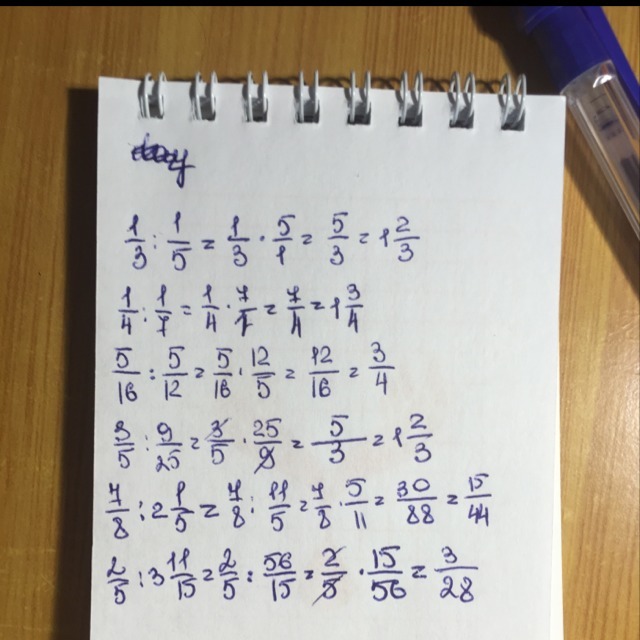 1/3 : 1/5 = 1/3 · 5/1 = 5/3 = 1 2/3
1/4 : 1/7 = 1/4 · 7/1 = 7/4 = 1 3/4
5/16 : 5/12 = 5/16 · 12/5 = 12/16 = 3/4
3/5 : 9/25 = 3/5 · 25/9 = 5/3 = 1 2/3
7/8 : 2 1/5 = 7/8 : 11/5 = 7/8 · 5/11 = 30/88 = 15/44
2/5 : 3 11/15 = 2/5 : 56/15 = 2/5 · 15/56 = 3/28